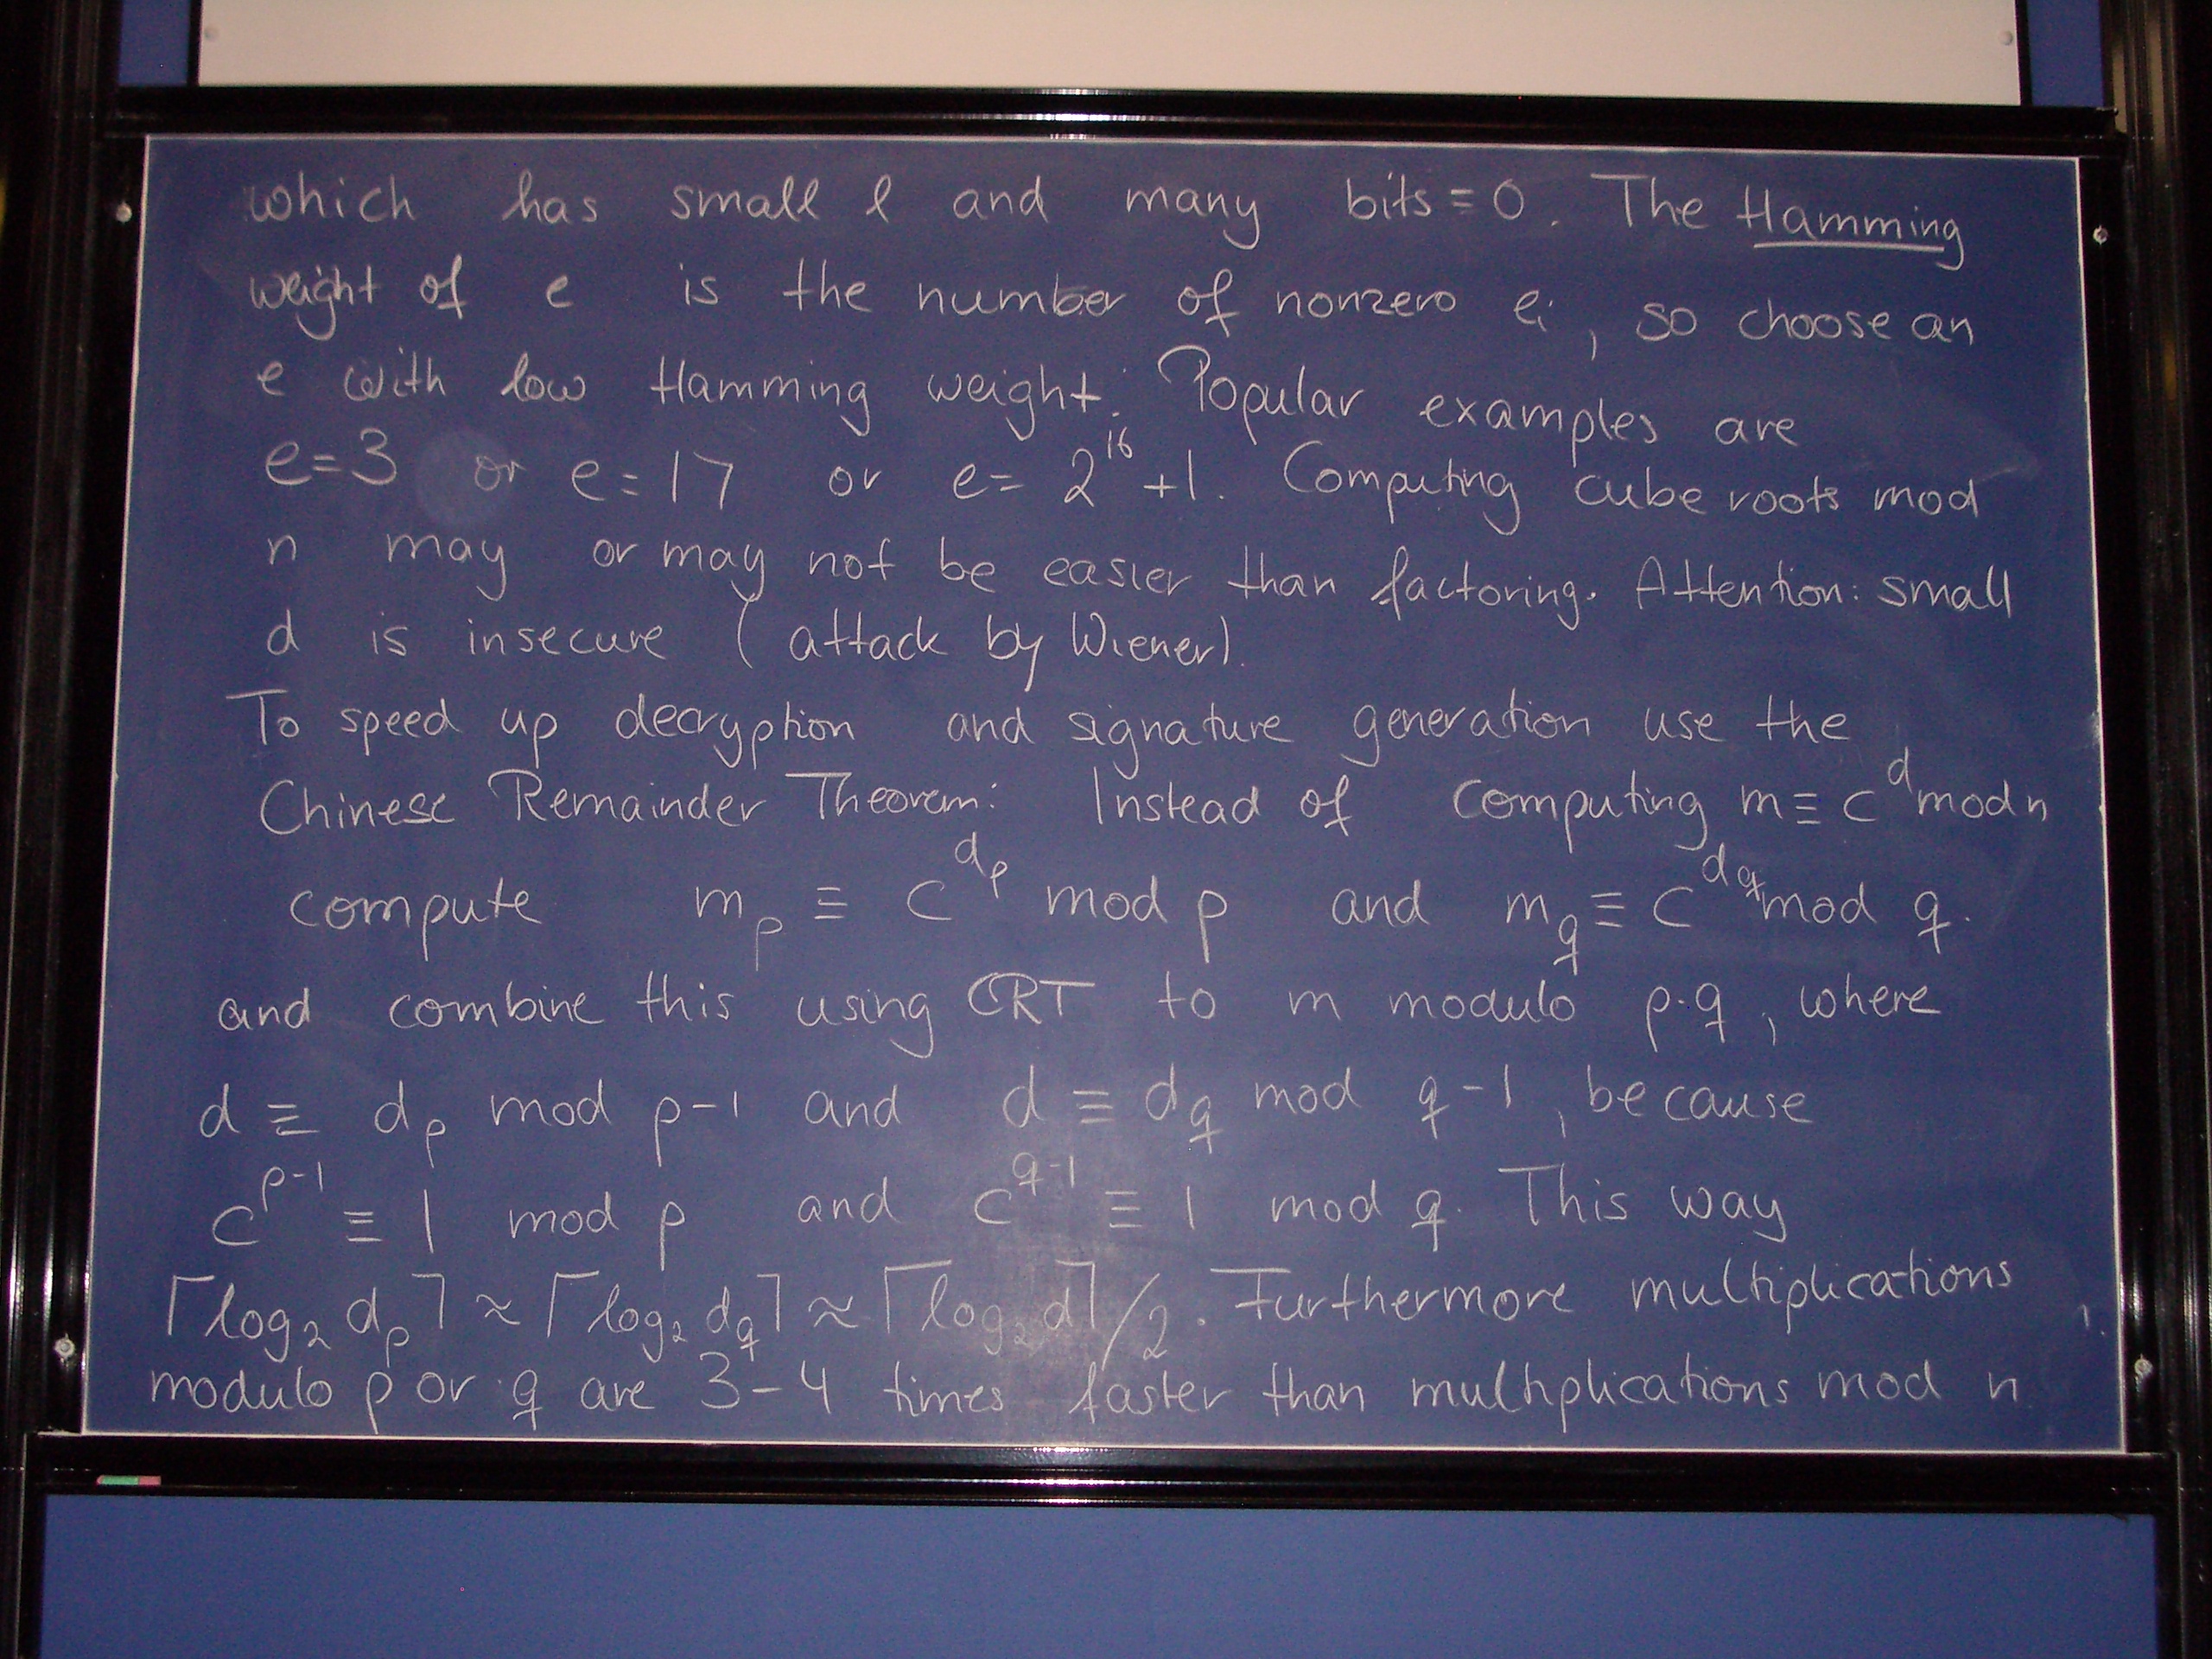 which has small l and many bits = 0. The Hamming
weight of e is the number of nonzero eᵢ, so choose an
e with low Hamming weight. Popular examples are
e=3 or e=17 or e= 2^16 +1. Computing cube roots mod
n may or may not be easier than factoring. Attention: small
d is insecure (attack by Wiener).
To speed up decryption and signature generation use the
Chinese Remainder Theorem: Instead of computing m ≡ c^d mod n
compute m_p ≡ c^{d_p} mod p and m_q ≡ c^{d_q} mod q.
and combine this using CRT to m modulo p·q, where
d ≡ d_p mod p-1 and d ≡ d_q mod q-1, because
c^{p-1} ≡ 1 mod p and c^{q-1} ≡ 1 mod q. This way
⌈log₂ d_p⌉ ≈ ⌈log₂ d_q⌉ ≈ ⌈log₂ d⌉/2. Furthermore multiplications
modulo p or q are 3-4 times faster than multiplications mod n.